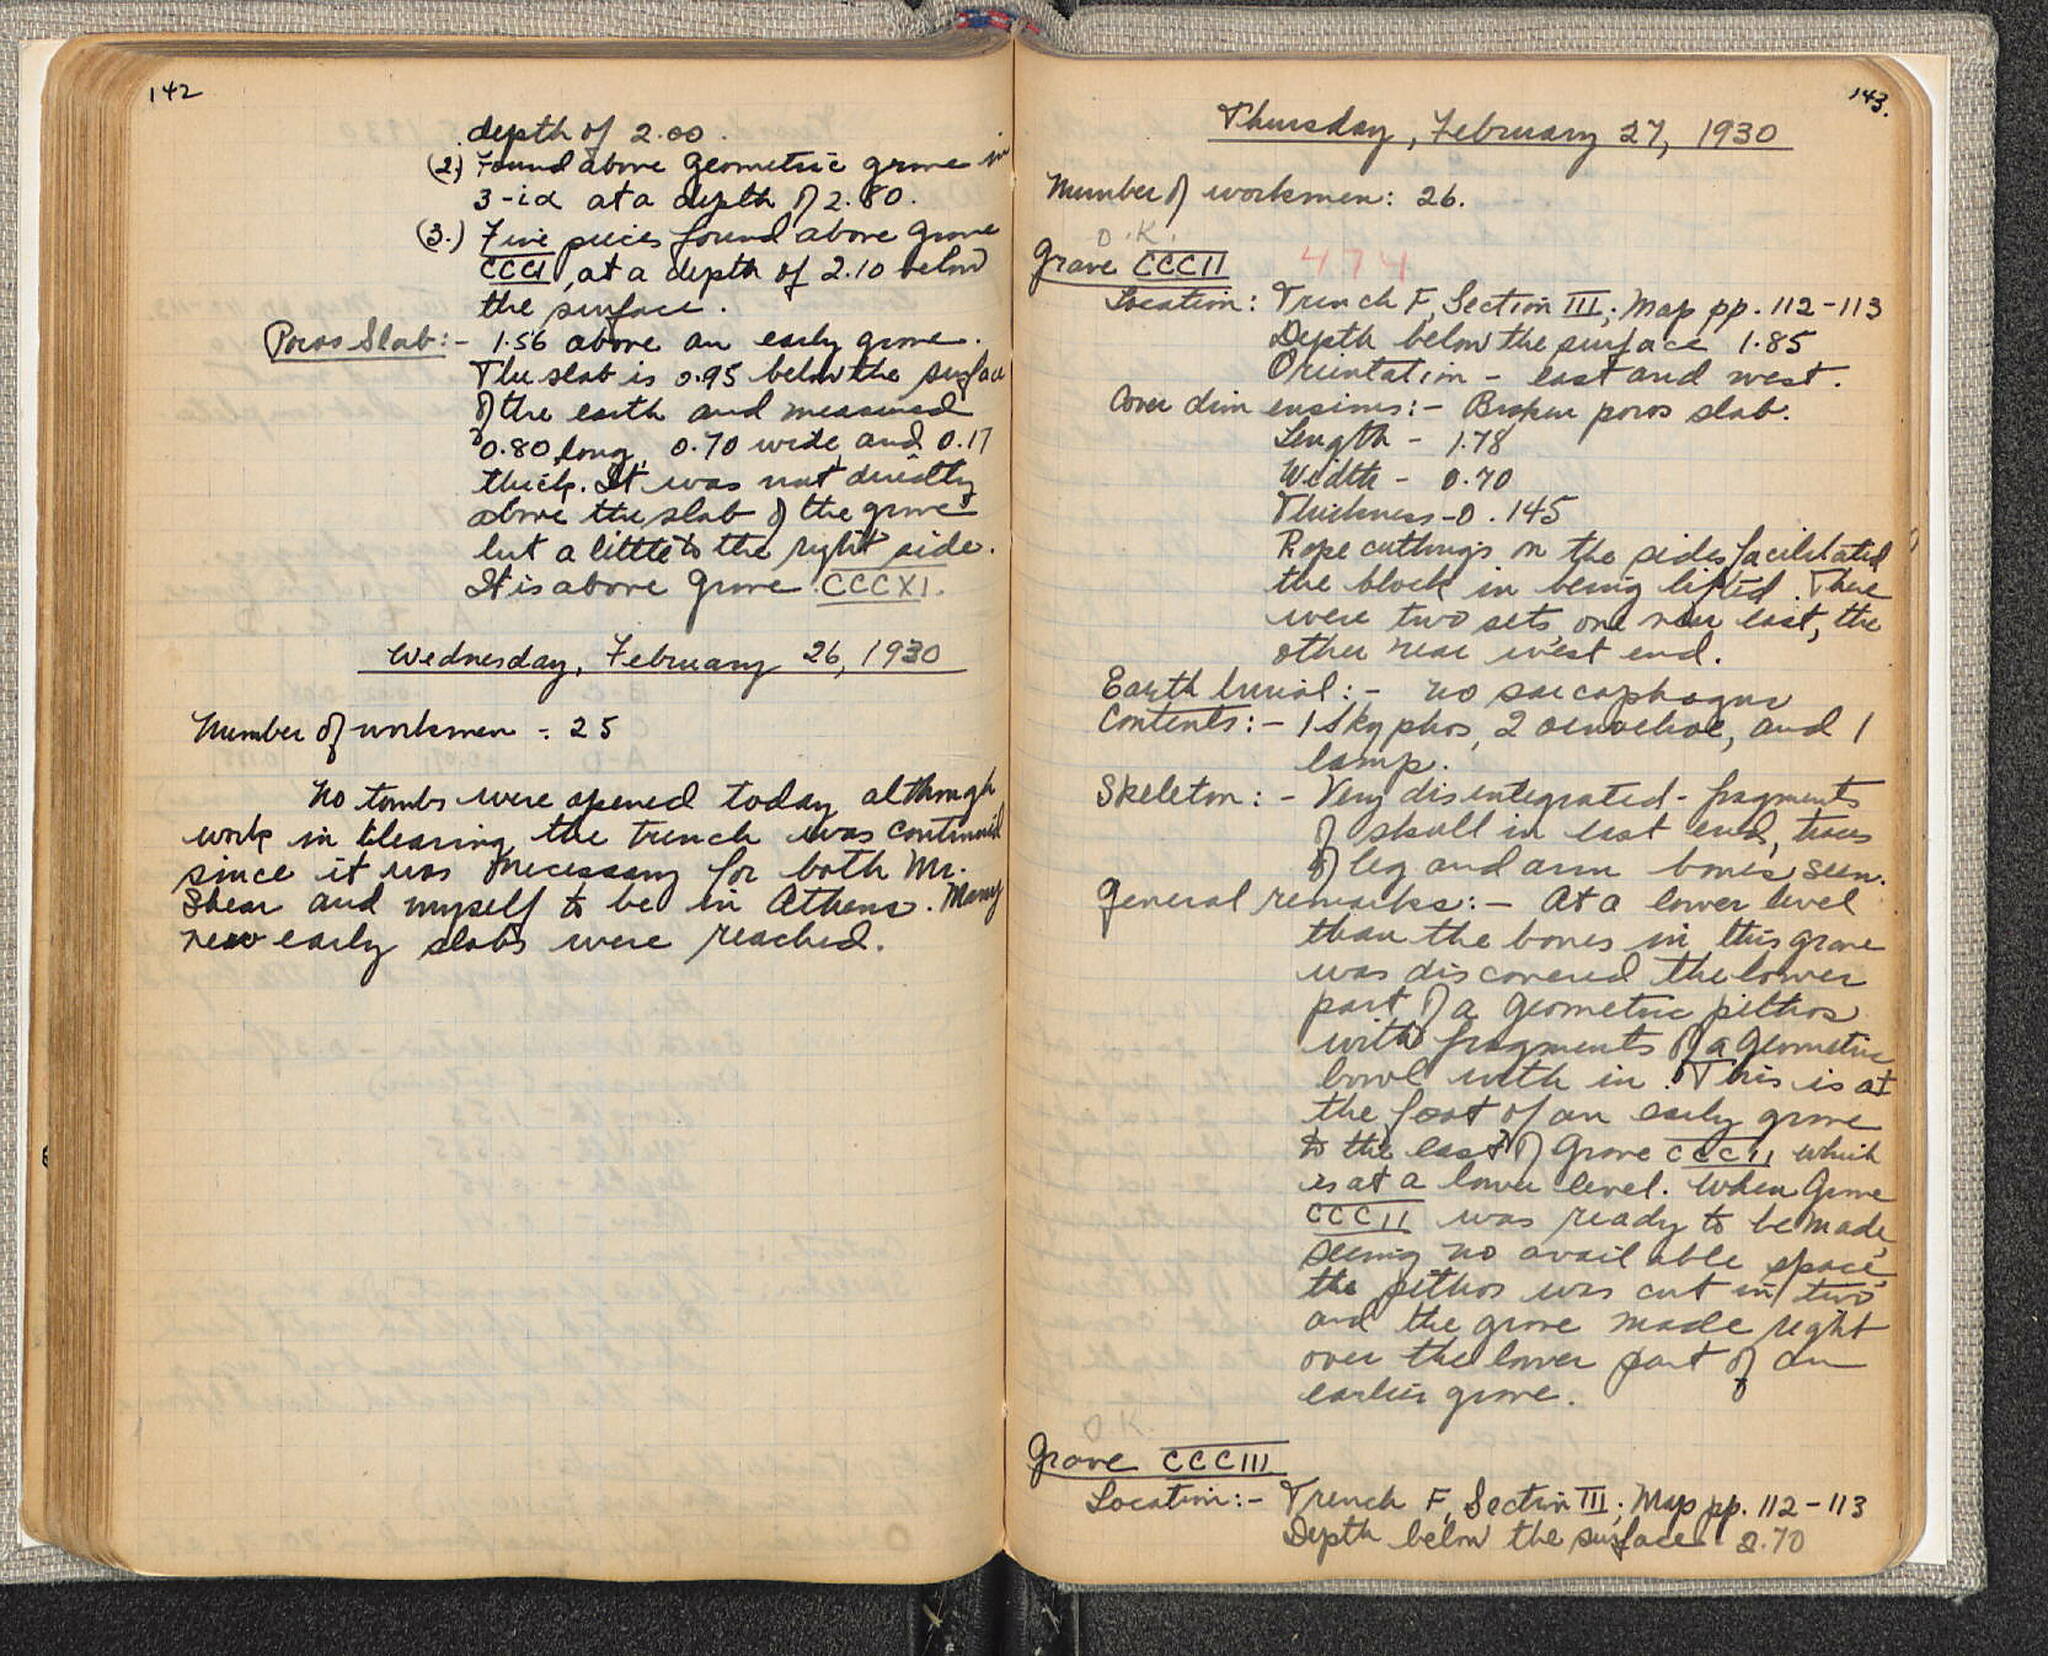 142
depth of 2.00.
(2.) Found above Geometric grave in
3-iα at a depth of 2.80.
(3.) Five pieces found above grave
CCCI, at a depth of 2.10 below
the surface.
Poros Slab:- 1.56 above an early grave.
The slab is 0.95 below the surface
of the earth and measured
0.80 long, 0.70 wide, and 0.17
thick. It was not directly
above the slab of the grave
but a little to the right side.
It is above Grave CCCXI.
Wednesday, February 26, 1930
Number of workmen : 25
No tombs were opened today although
work in clearing the trench was continued
since it was necessary for both Mr.
Shear and myself to be in Athens. Many
new early slabs were reached.
143.
Thursday, February 27, 1930
Number of workmen: 26.
O.K.
Grave CCCII 474
Location: Trench F, Section III; Map pp. 112-113
Depth below the surface 1.85
Orientation - east and west.
Cover dimensions:- Broken poros slab.
Length - 1.78
Width - 0.70
Thickness - 0.145
Rope cuttings on the sides facilitated
the block in being lifted. There
were two sets, one near east, the
other near west end.
Earth burial:- no sarcophagus
Contents:- 1 Skyphos, 2 oenochoe, and 1
lamp.
Skeleton:- Very disentegrated - fragments
of skull in east end, traces
of leg and arm bones seen.
General remarks:- At a lower level
than the bones in this grave
was discovered the lower
part of a Geometric pithos
with fragments of a Geometric
bowl with in. This is at
the foot of an early grave
to the east of Grave CCCII which
is at a lower level. When Grave
CCCII was ready to be made,
seeing no available space,
the pithos was cut in two
and the grave made right
over the lower part of an
earlier grave.
O.K.
Grave CCCIII
Location:- Trench F, Section III; Map pp. 112-113
Depth below the surface 2.70